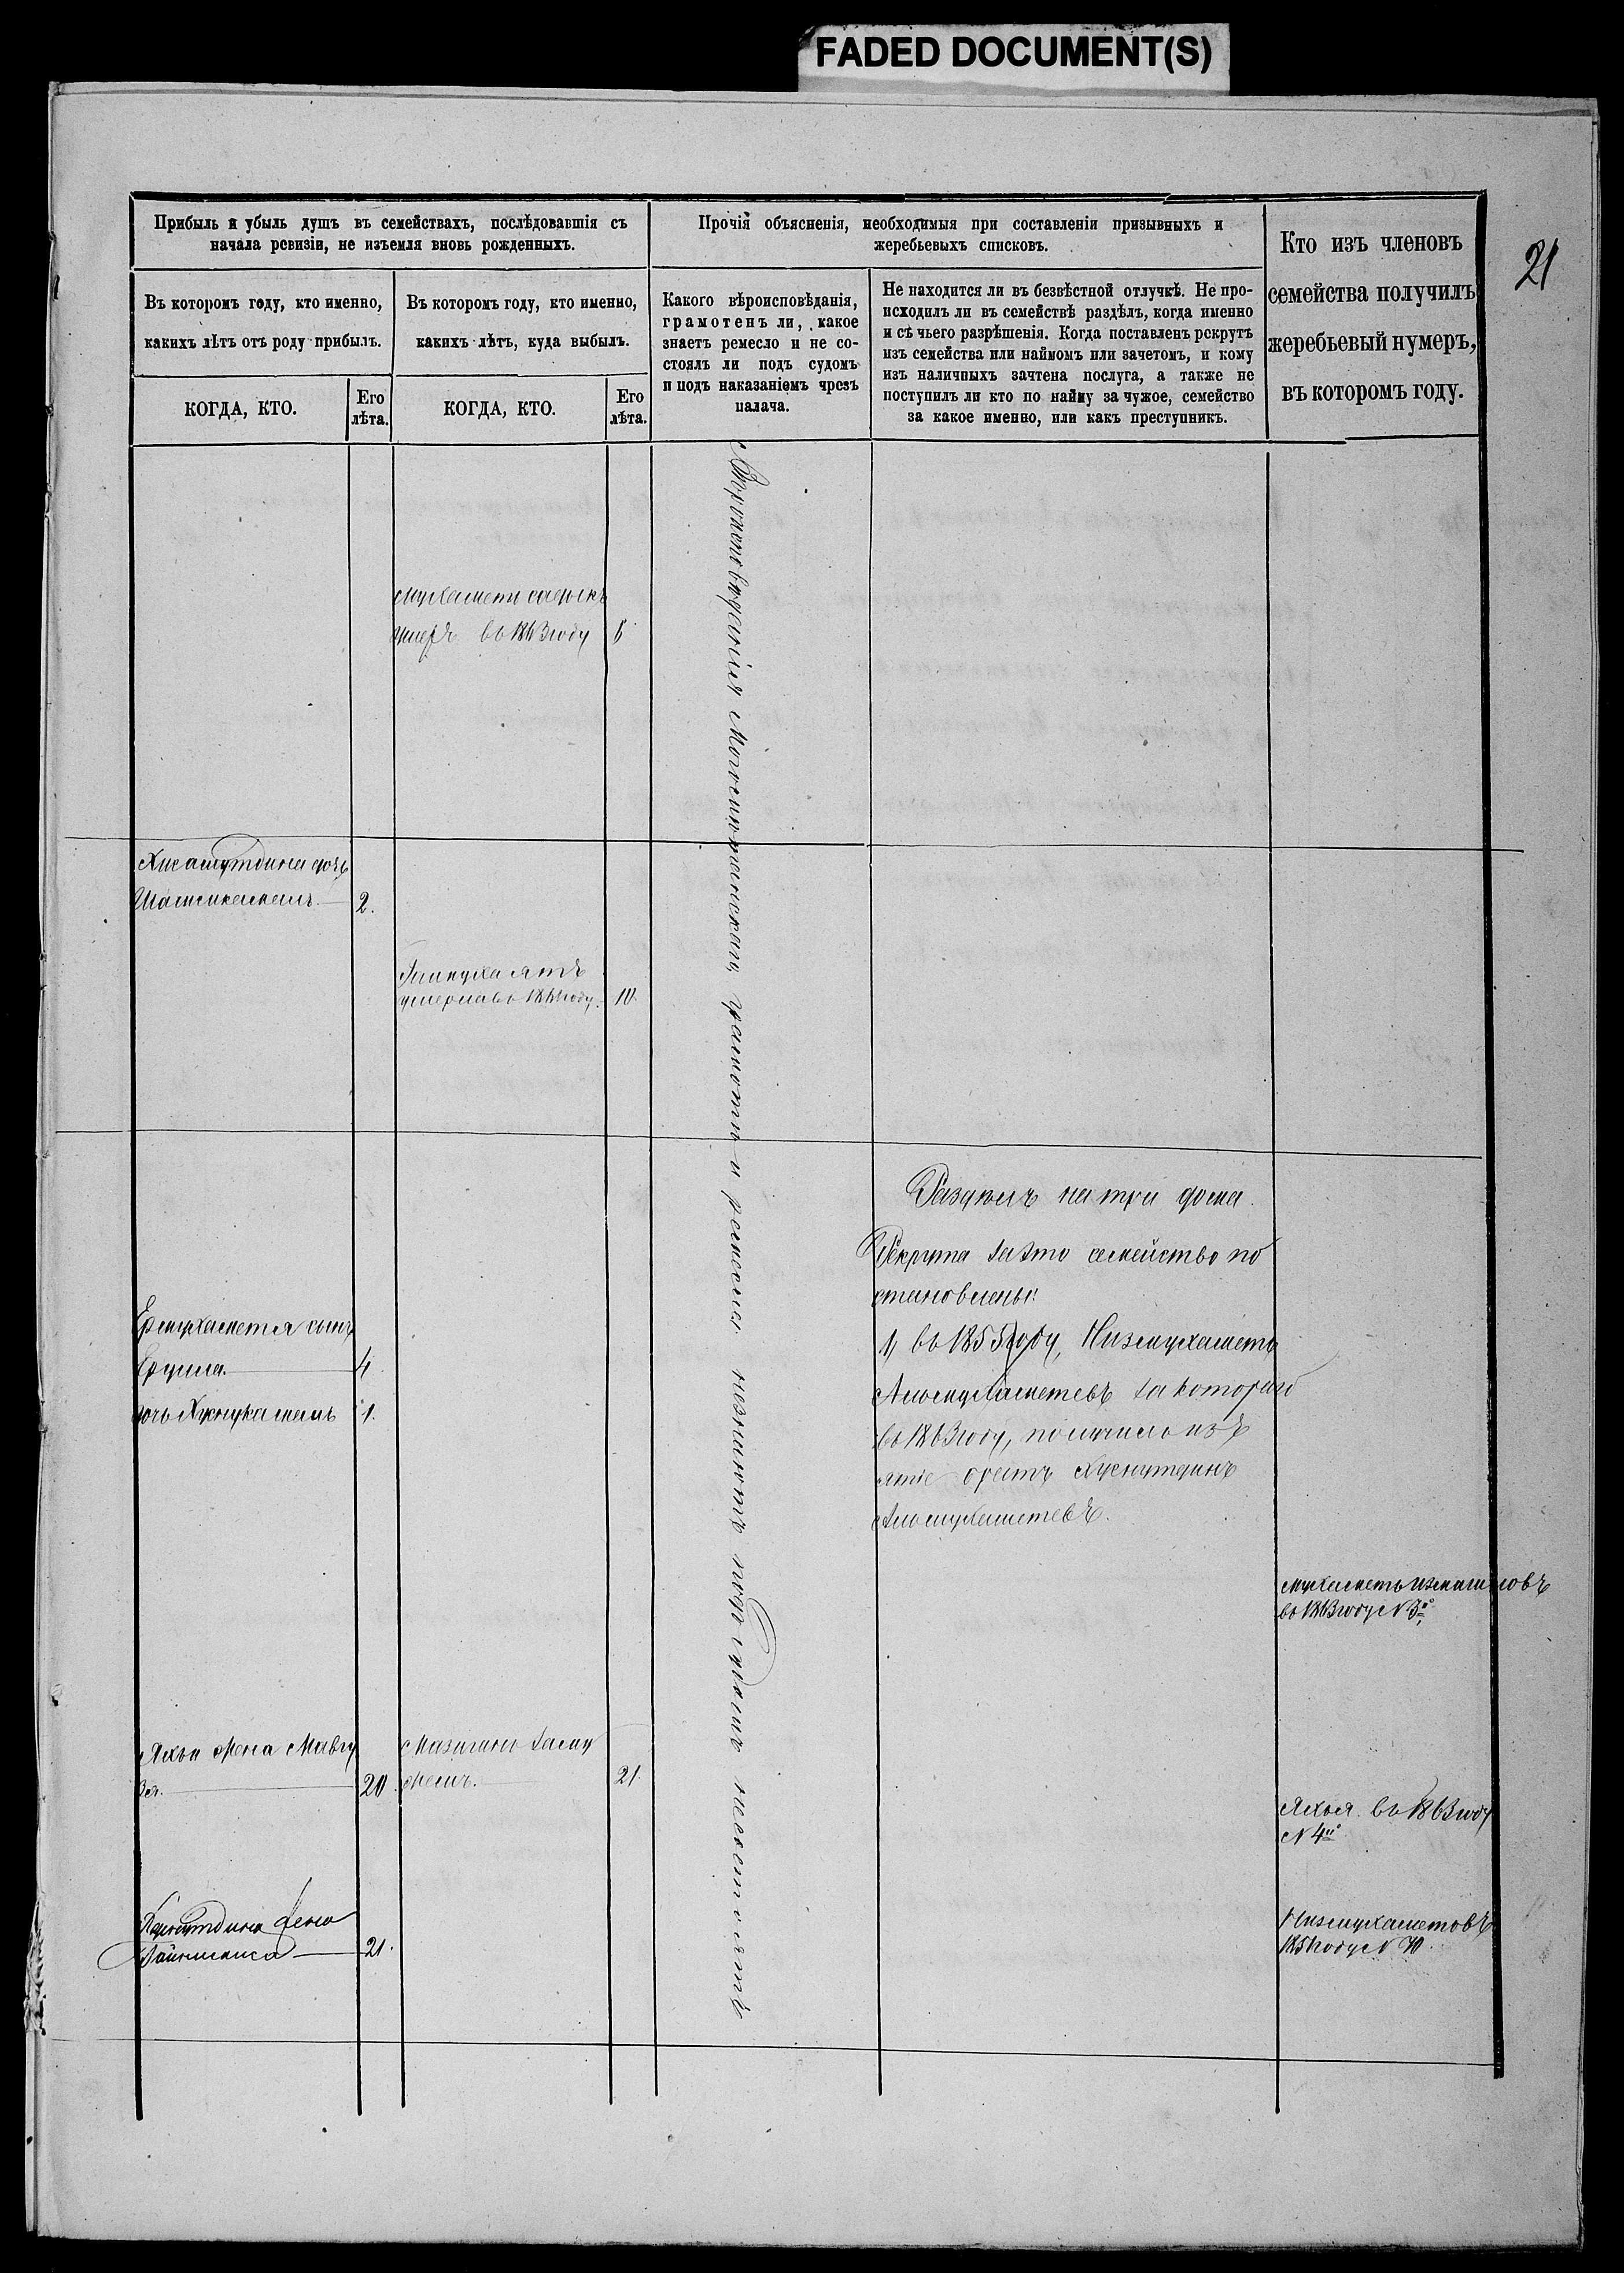 FADED DOCUMENT(S)
21
Прибыль и убыль душъ въ семействахъ, послѣдовавшія съ
начала ревизіи, не изъемля вновь рожденныхъ.
Прочія объясненія, необходимыя при составленіи призывныхъ и
жеребьевыхъ списковъ.
Кто изъ членовъ
семейства получилъ
жеребьевый нумеръ,
въ которомъ году.
Въ которомъ году, кто именно,
какихъ лѣтъ отъ роду прибылъ.
Въ которомъ году, кто именно,
какихъ лѣтъ, куда выбылъ.
Какого вѣроисповѣданія,
грамотенъ ли, какое
знаетъ ремесло и не со-
стоялъ ли подъ судомъ
и подъ наказаніемъ чрезъ
палача.
Не находится ли въ безвѣстной отлучкѣ. Не про-
исходилъ ли въ семействѣ раздѣлъ, когда именно
и съ чьего разрѣшенія. Когда поставленъ рекрутъ
изъ семейства или наймомъ или зачетомъ, и кому
изъ наличныхъ зачтена послуга, а также не
поступилъ ли кто по найму за чужое, семейство
за какое именно, или какъ преступникъ.
КОГДА, КТО.
Его
лѣта.
КОГДА, КТО.
Его
лѣта.
Вѣроисповѣданія Магометанскаго, грамоты и ремесла незнаютъ подъ судомъ несостоятъ
Мухамети садыкъ
умеръ въ 1863 году
Хисамутдина дочь
2.
умерла въ году. 10.
Раздѣлъ на три дома.
Рекрута за это семейство по
становлены:
1, въ 1855 году, Низмухаметъ
Альмухаметевъ за котораго
въ 1863 году, получилъ изъ
ятіе братъ Хуснутдинъ
Альмухаметевъ.
сынъ
4
дочь 1.
Мухаметь Исмагиловъ
въ 1863 году № 3й
жена
20.
21.
Яхья въ 1863 году
№ 4й
жена
21.
Низмухаметовъ